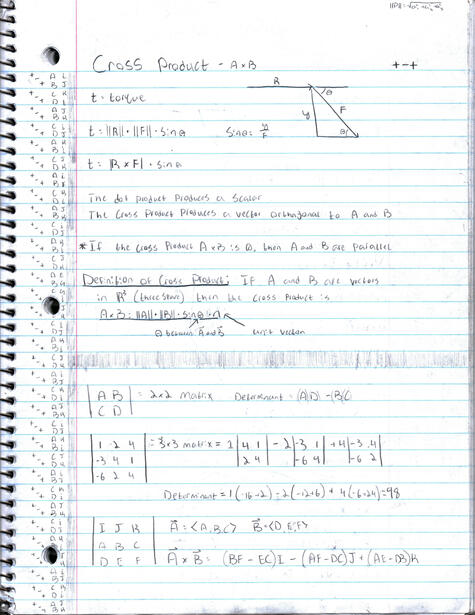 Cross Product - A×B
+-+
R
θ
t = torque
F
y
t = ||R|| · ||F|| · sinθ
sinθ = y/F
θ
t = |R × F| · sinθ
The dot product produces a scalar
The cross product produces a vector orthogonal to A and B
* If the cross product A×B is 0, then A and B are parallel
Definition of Cross Product: If A and B are vectors
in R³ (three space) then the cross product is
A×B = ||A|| · ||B|| · sinθ · n
θ between A and B
unit vector
| A B | = 2×2 matrix Determinant = (AD) - (BC)
| C D |
| 1 -2 4 | = 3×3 matrix = 1 | 4 1 | - 2 | -3 1 | + 4 | -3 4 |
| -3 4 1 | | 2 4 | | -6 4 | | -6 2 |
| -6 2 4 |
| I J K | A = <A,B,C> B = <D,E,F>
| A B C |
| D E F | A × B = (BF - EC)I - (AF - DC)J + (AE - DB)K